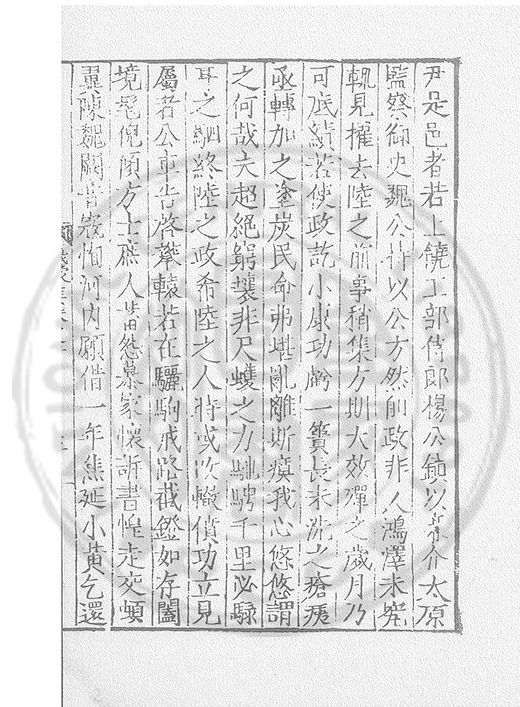 尹是邑者若上饒工部侍郎楊公鎮以介太原
監察御史魏公持以公方然前政非人鴻澤未究
輒見擢去陸之前事稍集方期大效殫之歲月乃
可底績若使政訖小康功虧一簣長未洗之瘡痍
亟轉加之塗炭民命弗堪亂離斯瘼我心悠悠謂
之何哉夫超絕窮壤非尺蠖之力馳騁千里必騄
耳之駟終陸之政希陸之人時或改轍僨功立見
屬者公車告啓攀轅若在驪駒戒路截鐙如存闔
境髦倪傾方士庶人皆怨慕家懷訴書惶走交頓
冀陳魏闕昔寇恂河內願借一年焦延小黃乞還